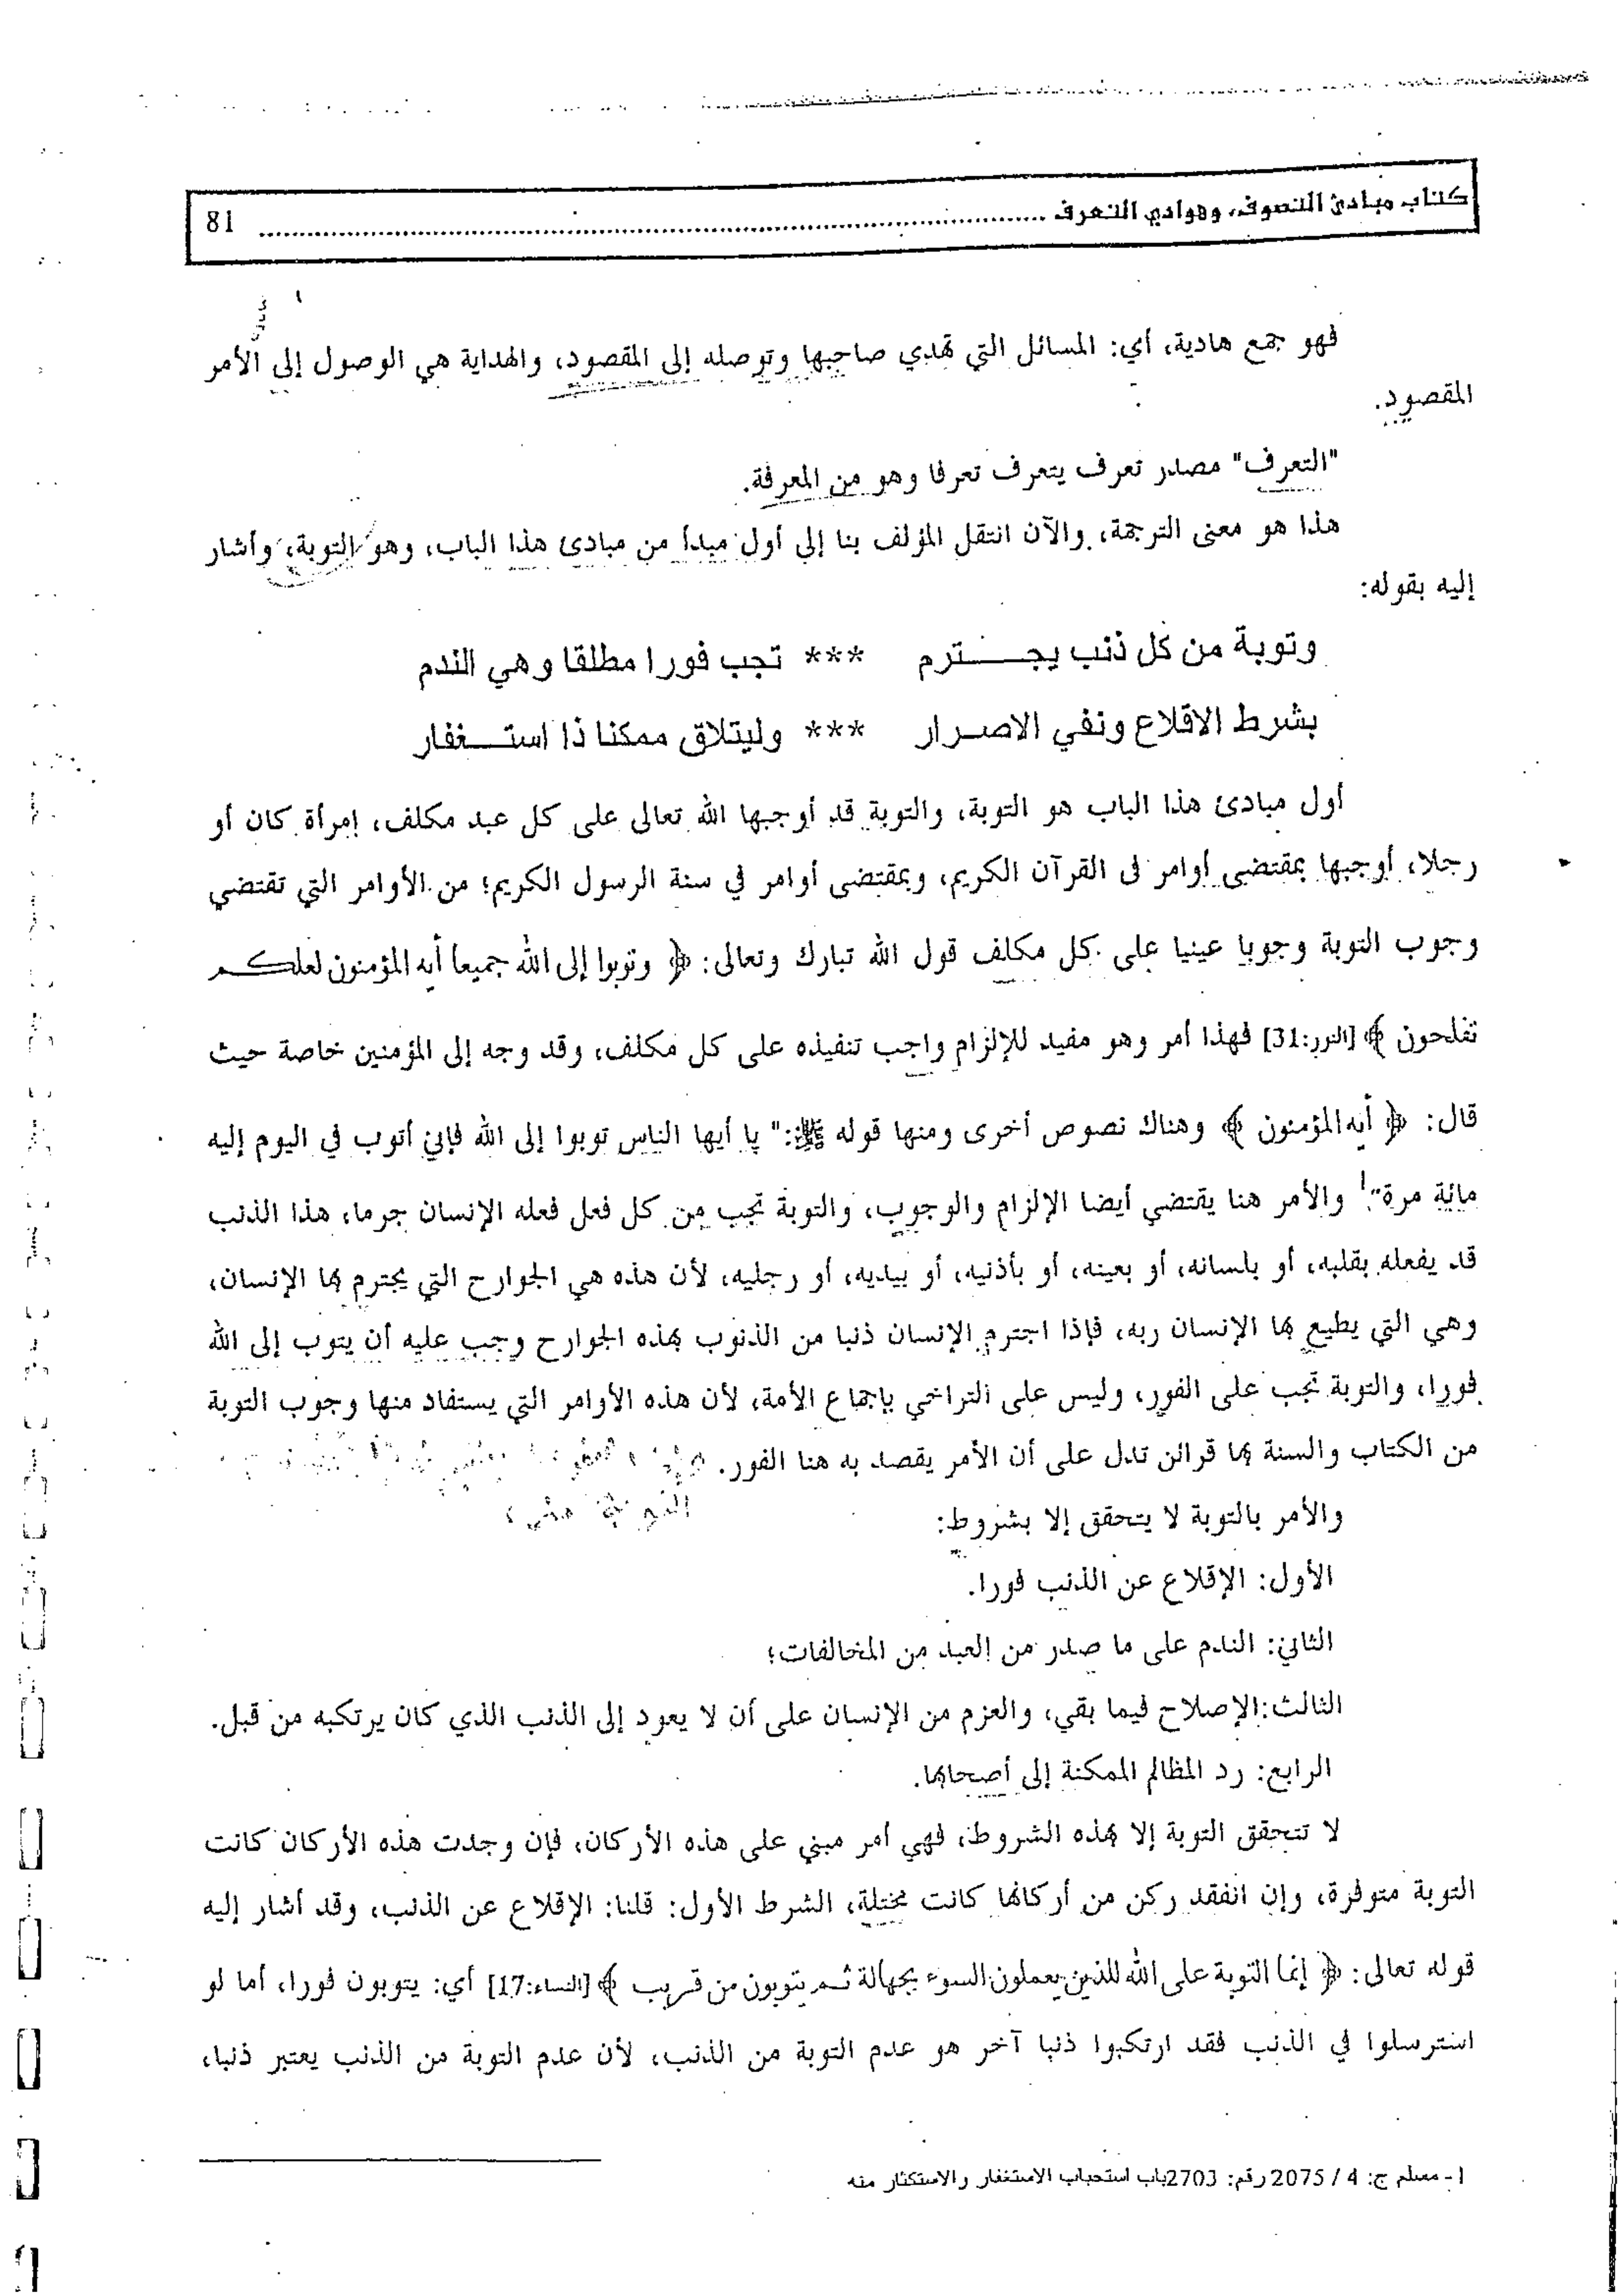 كتاب مبادئ التصوف، وهوادي التعرف ........................................ 81
فهو جمع هادية، أي: المسائل التي تهدي صاحبها وتوصله إلى المقصود، والهداية هي الوصول إلى الأمر
المقصود.
"التعرف" مصدر تعرف يتعرف تعرفا وهو من المعرفة.
هذا هو معنى الترجمة، والآن انتقل المؤلف بنا إلى أول مبدأ من مبادئ هذا الباب، وهو التوبة، وأشار
إليه بقوله:
وتوبة من كل ذنب يجـــــترم *** تجب فورا مطلقا وهي الندم
بشرط الاقلاع ونفي الاصـرار *** وليتلاق ممكنا ذا استــغفار
أول مبادئ هذا الباب هو التوبة، والتوبة قد أوجبها الله تعالى على كل عبد مكلف، إمرأة كان أو
رجلا، أوجبها بمقتضى أوامر في القرآن الكريم، وبمقتضى أوامر في سنة الرسول الكريم؛ من الأوامر التي تقتضي
وجوب التوبة وجوبا عينيا على كل مكلف قول الله تبارك وتعالى: ﴿ وتوبوا إلى الله جميعا أيه المؤمنون لعلكـم
تفلحون ﴾ [النور:31] فهذا أمر وهو مفيد للإلزام واجب تنفيذه على كل مكلف، وقد وجه إلى المؤمنين خاصة حيث
قال: ﴿ أيه المؤمنون ﴾ وهناك نصوص أخرى ومنها قوله ﷺ:" يا أيها الناس توبوا إلى الله فإني أتوب في اليوم إليه
مائة مرة"1 والأمر هنا يقتضي أيضا الإلزام والوجوب، والتوبة تجب من كل فعل فعله الإنسان جرما، هذا الذنب
قد يفعله بقلبه، أو بلسانه، أو بعينه، أو بأذنيه، أو بيديه، أو رجليه، لأن هذه هي الجوارح التي يجترم بها الإنسان،
وهي التي يطيع بها الإنسان ربه، فإذا اجترم الإنسان ذنبا من الذنوب بهذه الجوارح وجب عليه أن يتوب إلى الله
فورا، والتوبة تجب على الفور، وليس على التراخي بإجماع الأمة، لأن هذه الأوامر التي يستفاد منها وجوب التوبة
من الكتاب والسنة بها قرائن تدل على أن الأمر يقصد به هنا الفور.
والأمر بالتوبة لا يتحقق إلا بشروط:
الأول: الإقلاع عن الذنب فورا.
الثاني: الندم على ما صدر من العبد من المخالفات؛
الثالث:الإصلاح فيما بقي، والعزم من الإنسان على أن لا يعود إلى الذنب الذي كان يرتكبه من قبل.
الرابع: رد المظالم الممكنة إلى أصحابها.
لا تتحقق التوبة إلا بهذه الشروط، فهي أمر مبني على هذه الأركان، فإن وجدت هذه الأركان كانت
التوبة متوفرة، وإن انفقد ركن من أركانها كانت مختلة، الشرط الأول: قلنا: الإقلاع عن الذنب، وقد أشار إليه
قوله تعالى: ﴿ إنما التوبة على الله للذين يعملون السوء بجهالة ثـم يتوبون من قريب ﴾ [النساء:17] أي: يتوبون فورا، أما لو
استرسلوا في الذنب فقد ارتكبوا ذنبا آخر هو عدم التوبة من الذنب، لأن عدم التوبة من الذنب يعتبر ذنبا،
1- مسلم ج: 4 / 2075 رقم: 2703باب استحباب الاستغفار والاستكثار منه